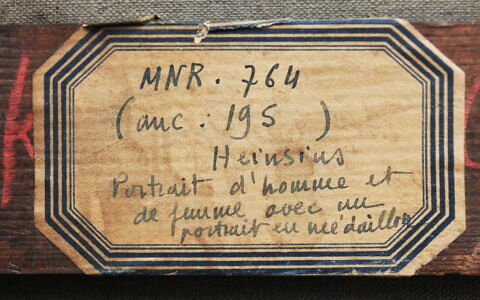 MNR. 764
(anc : 195 )
Heinsius
Portrait d'homme et
de femme avec un
portrait en médaillon